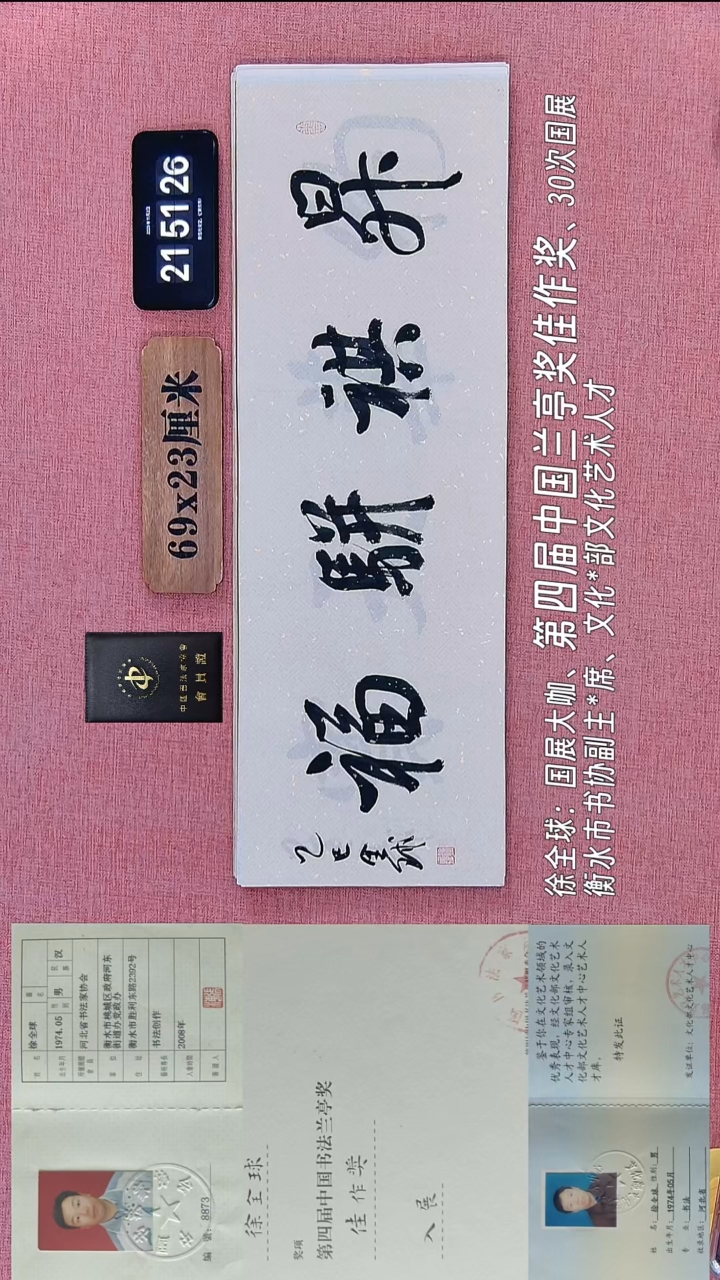 21 51 26
69x23厘米
中国书法家协会
會員證
昇祺駢福
乙巳全球
徐全球：国展大咖、第四届中国兰亭奖佳作奖、30次国展
衡水市书协副主*席、文化*部文化艺术人才
编号：8873
姓名 徐全球
出生年月 1974.05 性别 男 民族 汉
河北省书法家协会
衡水市桃城区政府河东
街道办党政办
衡水市胜利东路2392号
书法创作
2008年
徐全球
奖项
第四届中国书法兰亭奖
佳作奖
入展
姓名：徐全球 性别：男
出生年月：1974年05月
专业：书法
收录地区：河北省
鉴于你在文化艺术领域的
优秀表现，经文化部文化艺术
人才中心专家组审核，录入文
化部文化艺术人才中心艺术人
才库。
特发此证
发证单位：文化部文化艺术人才中心